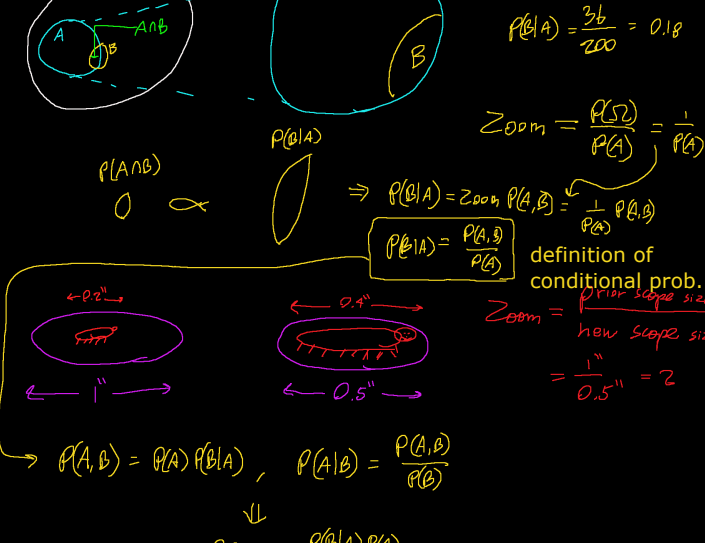 A
A∩B
B
B
P(B|A) = 36/200 = 0.18
Zoom = P(Ω)/P(A) = 1/P(A)
P(A∩B)
P(B|A)
∝
⇒ P(B|A) = Zoom P(A,B) = 1/P(A) P(A,B)
P(B|A) = P(A,B)/P(A)
definition of
conditional prob.
←0.2"→
← 0.4" →
Zoom = prior scope / new scope
= 1"/0.5" = 2
← 1" →
← 0.5" →
→ P(A,B) = P(A) P(B|A) , P(A|B) = P(A,B)/P(B)
⇓
P(B|A) P(A)